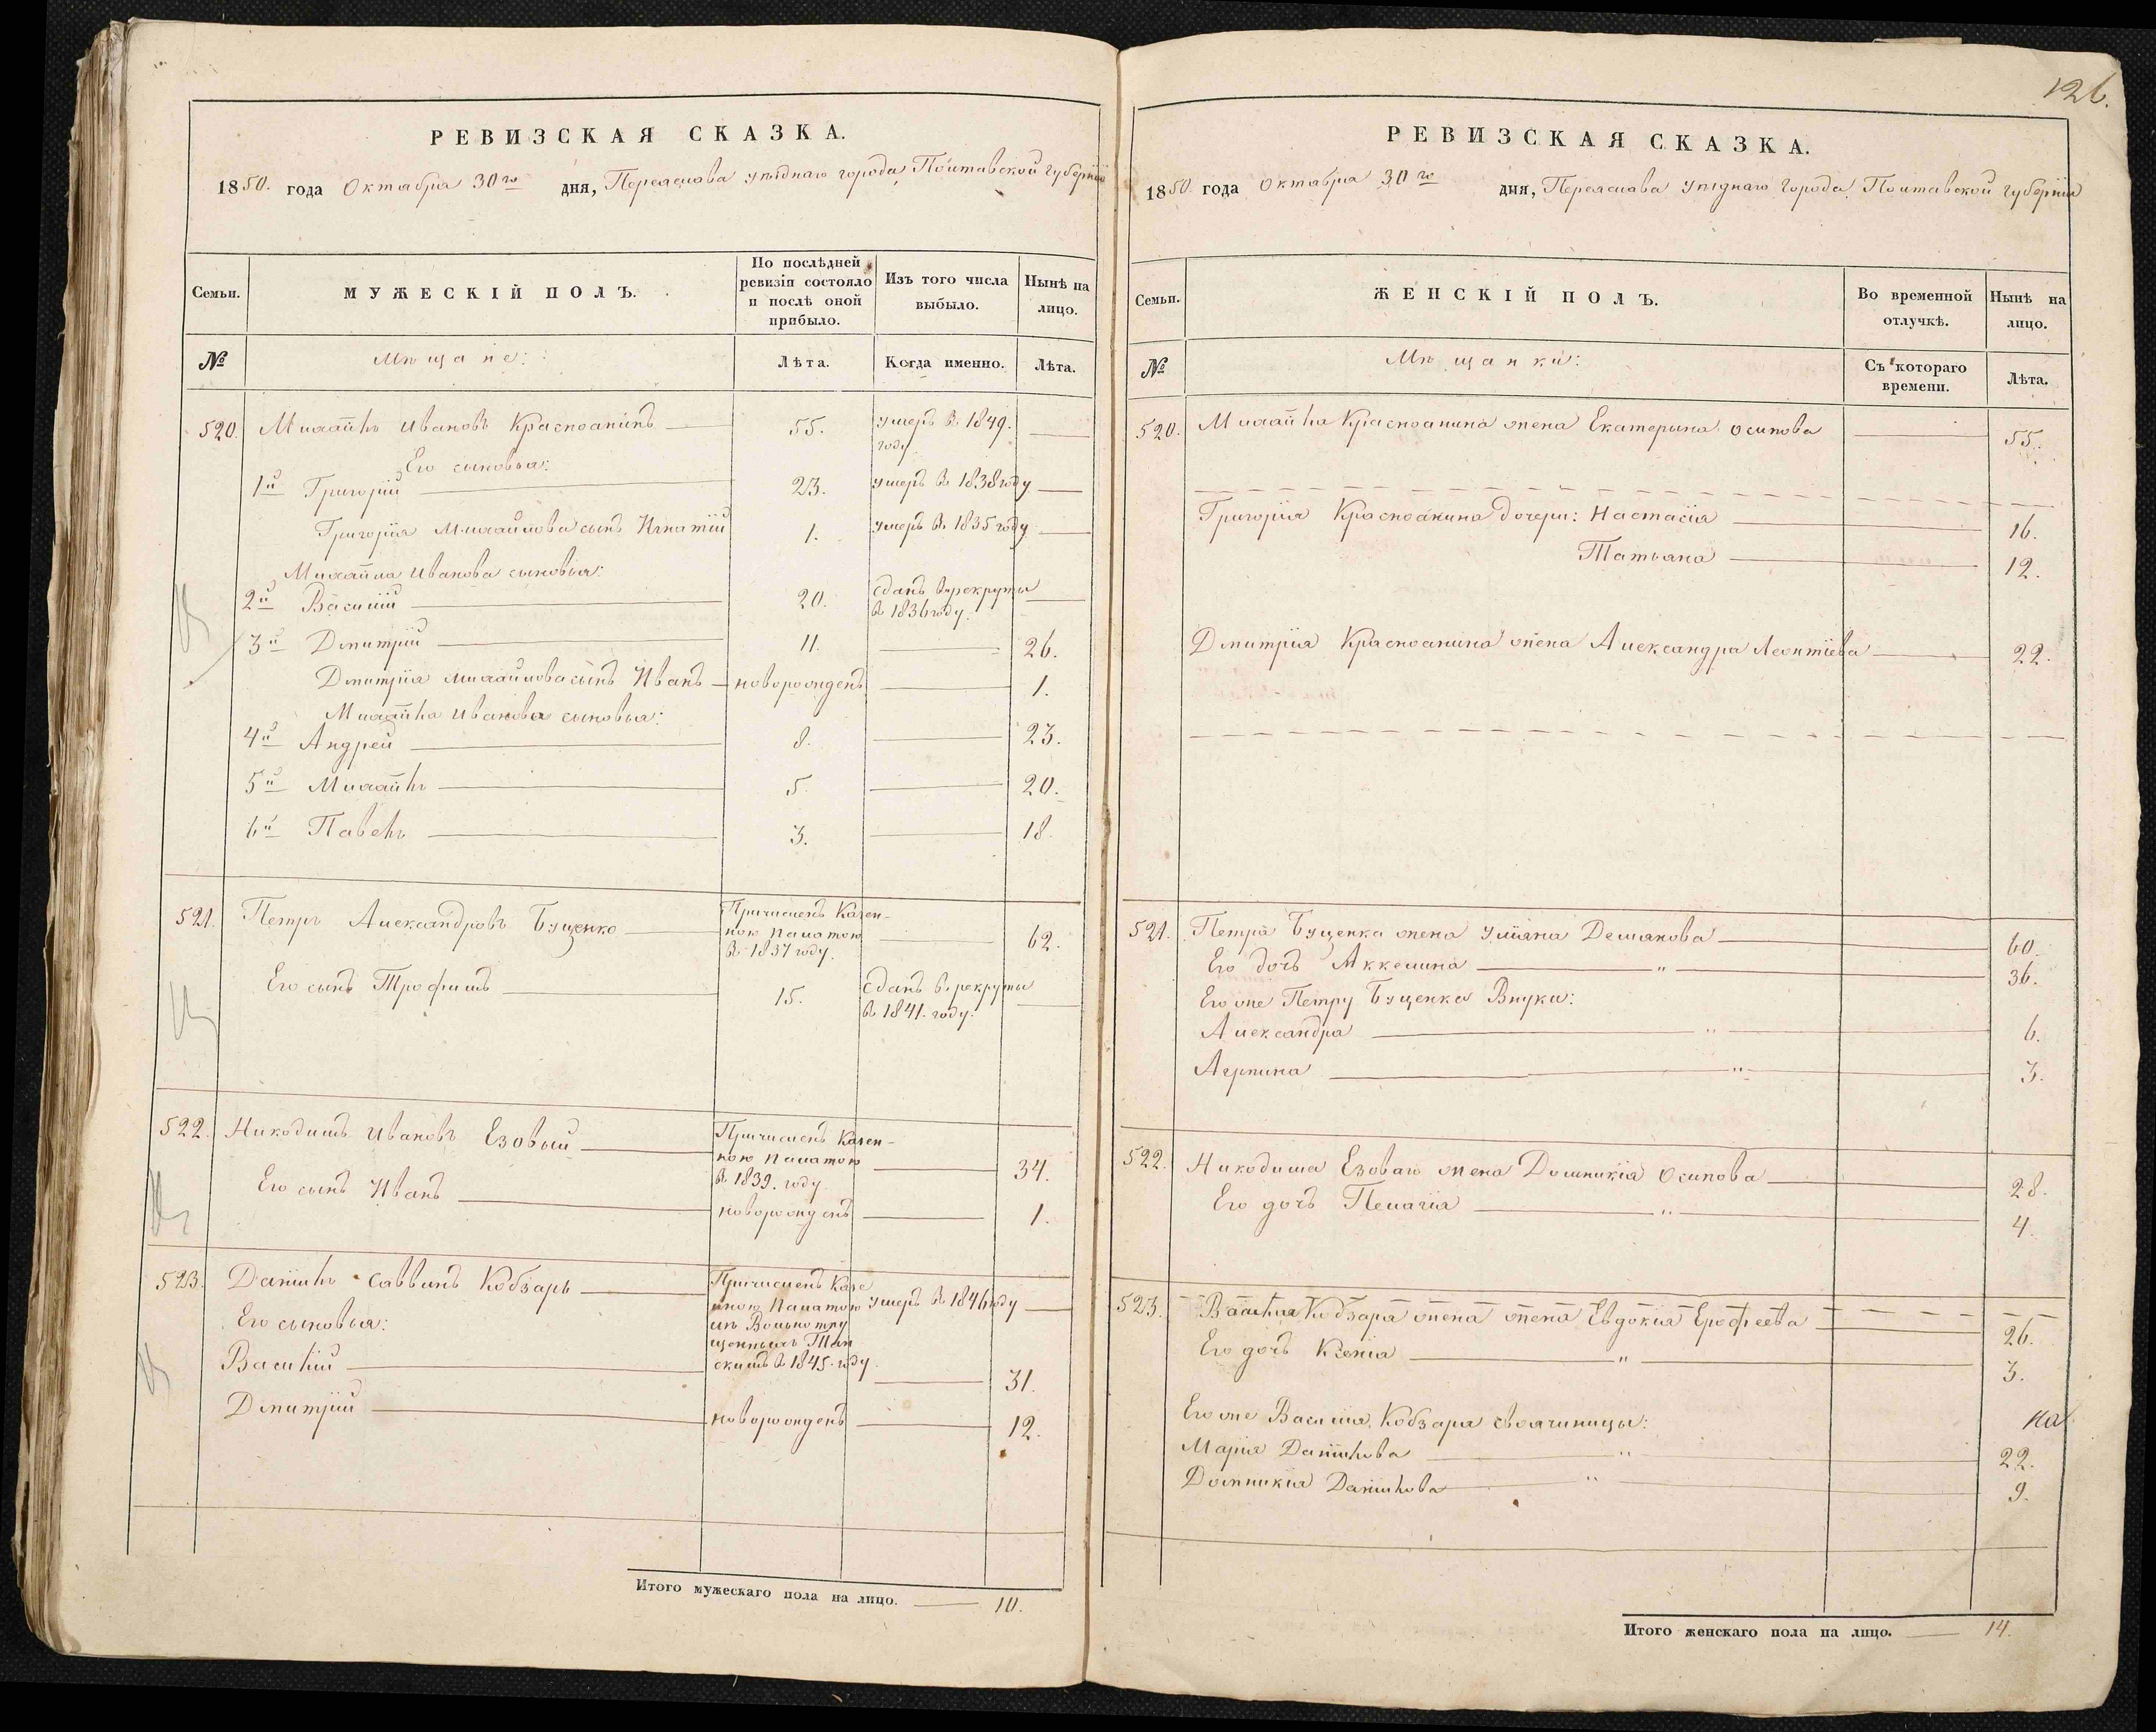 126.
РЕВИЗСКАЯ СКАЗКА.
1850. года Октября 30го дня, Переяслова уѣзднаго города, Полтавской губерніи
Семьи.
МУЖЕСКІЙ ПОЛЪ.
По послѣдней ревизіи состояло и послѣ оной прибыло.
Изъ того числа выбыло.
Нынѣ на лицо.
№
Мѣщане:
Лѣта.
Когда именно.
Лѣта.
520. Михайлъ Ивановъ Красножанинъ 55. умеръ в 1849. году
Его сыновья:
1й Григорій 23. умеръ в 1838 году
Григорія Михайлова сынъ Игнатій 1. умеръ в 1835 году
Михайла Иванова сыновья:
2й Василій 20. сданъ в рекруты в 1836 году.
3й Дмитрій 11. 26.
Дмитрія Михайлова сынъ Иванъ новорожденъ 1.
Михайла Иванова сыновья:
4й Андрей 8. 23.
5й Михайлъ 5. 20.
6й Павелъ 3. 18.
521. Петръ Александровъ Буценко Причисленъ Казенною Палатою в 1837 году. 62.
Его сынъ Трофимъ 15. Сданъ в рекруты в 1841. году.
522. Никодимъ Ивановъ Езовый Причисленъ Казенною Палатою в 1839. году 34.
Его сынъ Иванъ новорожденъ 1.
523. Даніилъ Саввинъ Кобзарь Причисленъ Казенною Палатою изъ Вольноотпущенныхъ в 1845. году умеръ в 1846 году
Его сыновья:
Василій 31.
Дмитрій новорожденъ 12.
Итого мужескаго пола на лицо. 10.
РЕВИЗСКАЯ СКАЗКА.
1850. года Октября 30го дня, Переяслава уѣзднаго города, Полтавской губерніи
Семьи.
ЖЕНСКІЙ ПОЛЪ.
Во временной отлучкѣ.
Нынѣ на лицо.
№
Мѣщанки:
Съ котораго времени.
Лѣта.
520. Михайла Красножанина жена Екатерина Осипова 55.
Григорія Красножанина дочери: Настасія 16.
Татьяна 12.
Дмитрія Красножанина жена Александра Леонтіева 22.
521. Петра Буценка жена Уліяна Демянова 60.
Его дочь Аккелина " 36.
Его же Петру Буценка Внуки:
Александра " 6.
Агрпина " 3.
522. Никодима Езоваго жена Домникія Осипова 28.
Его дочь Пелагія " 4.
523. Василія Кобзаря жена жена Евдокия Ерофеева 26.
Его дочь Ксенія " 3.
Его же Василія Кобзаря своячиницы:
на
Марія Даніилова " 22.
Домникія Даніилова " 9.
Итого женскаго пола на лицо. 14.